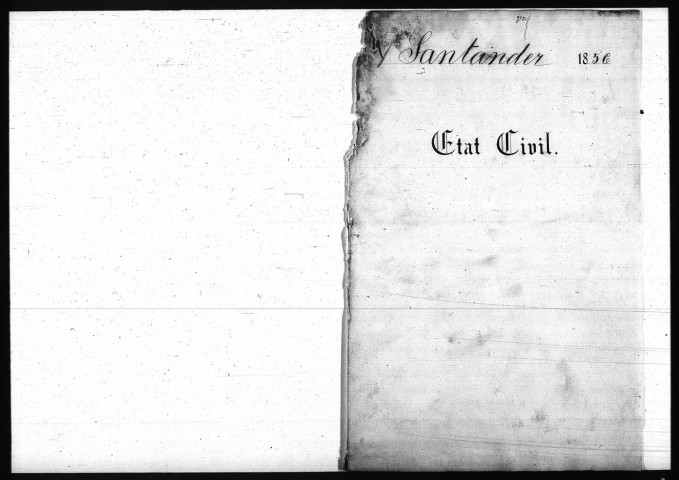 Santander 1836
Etat Civil.